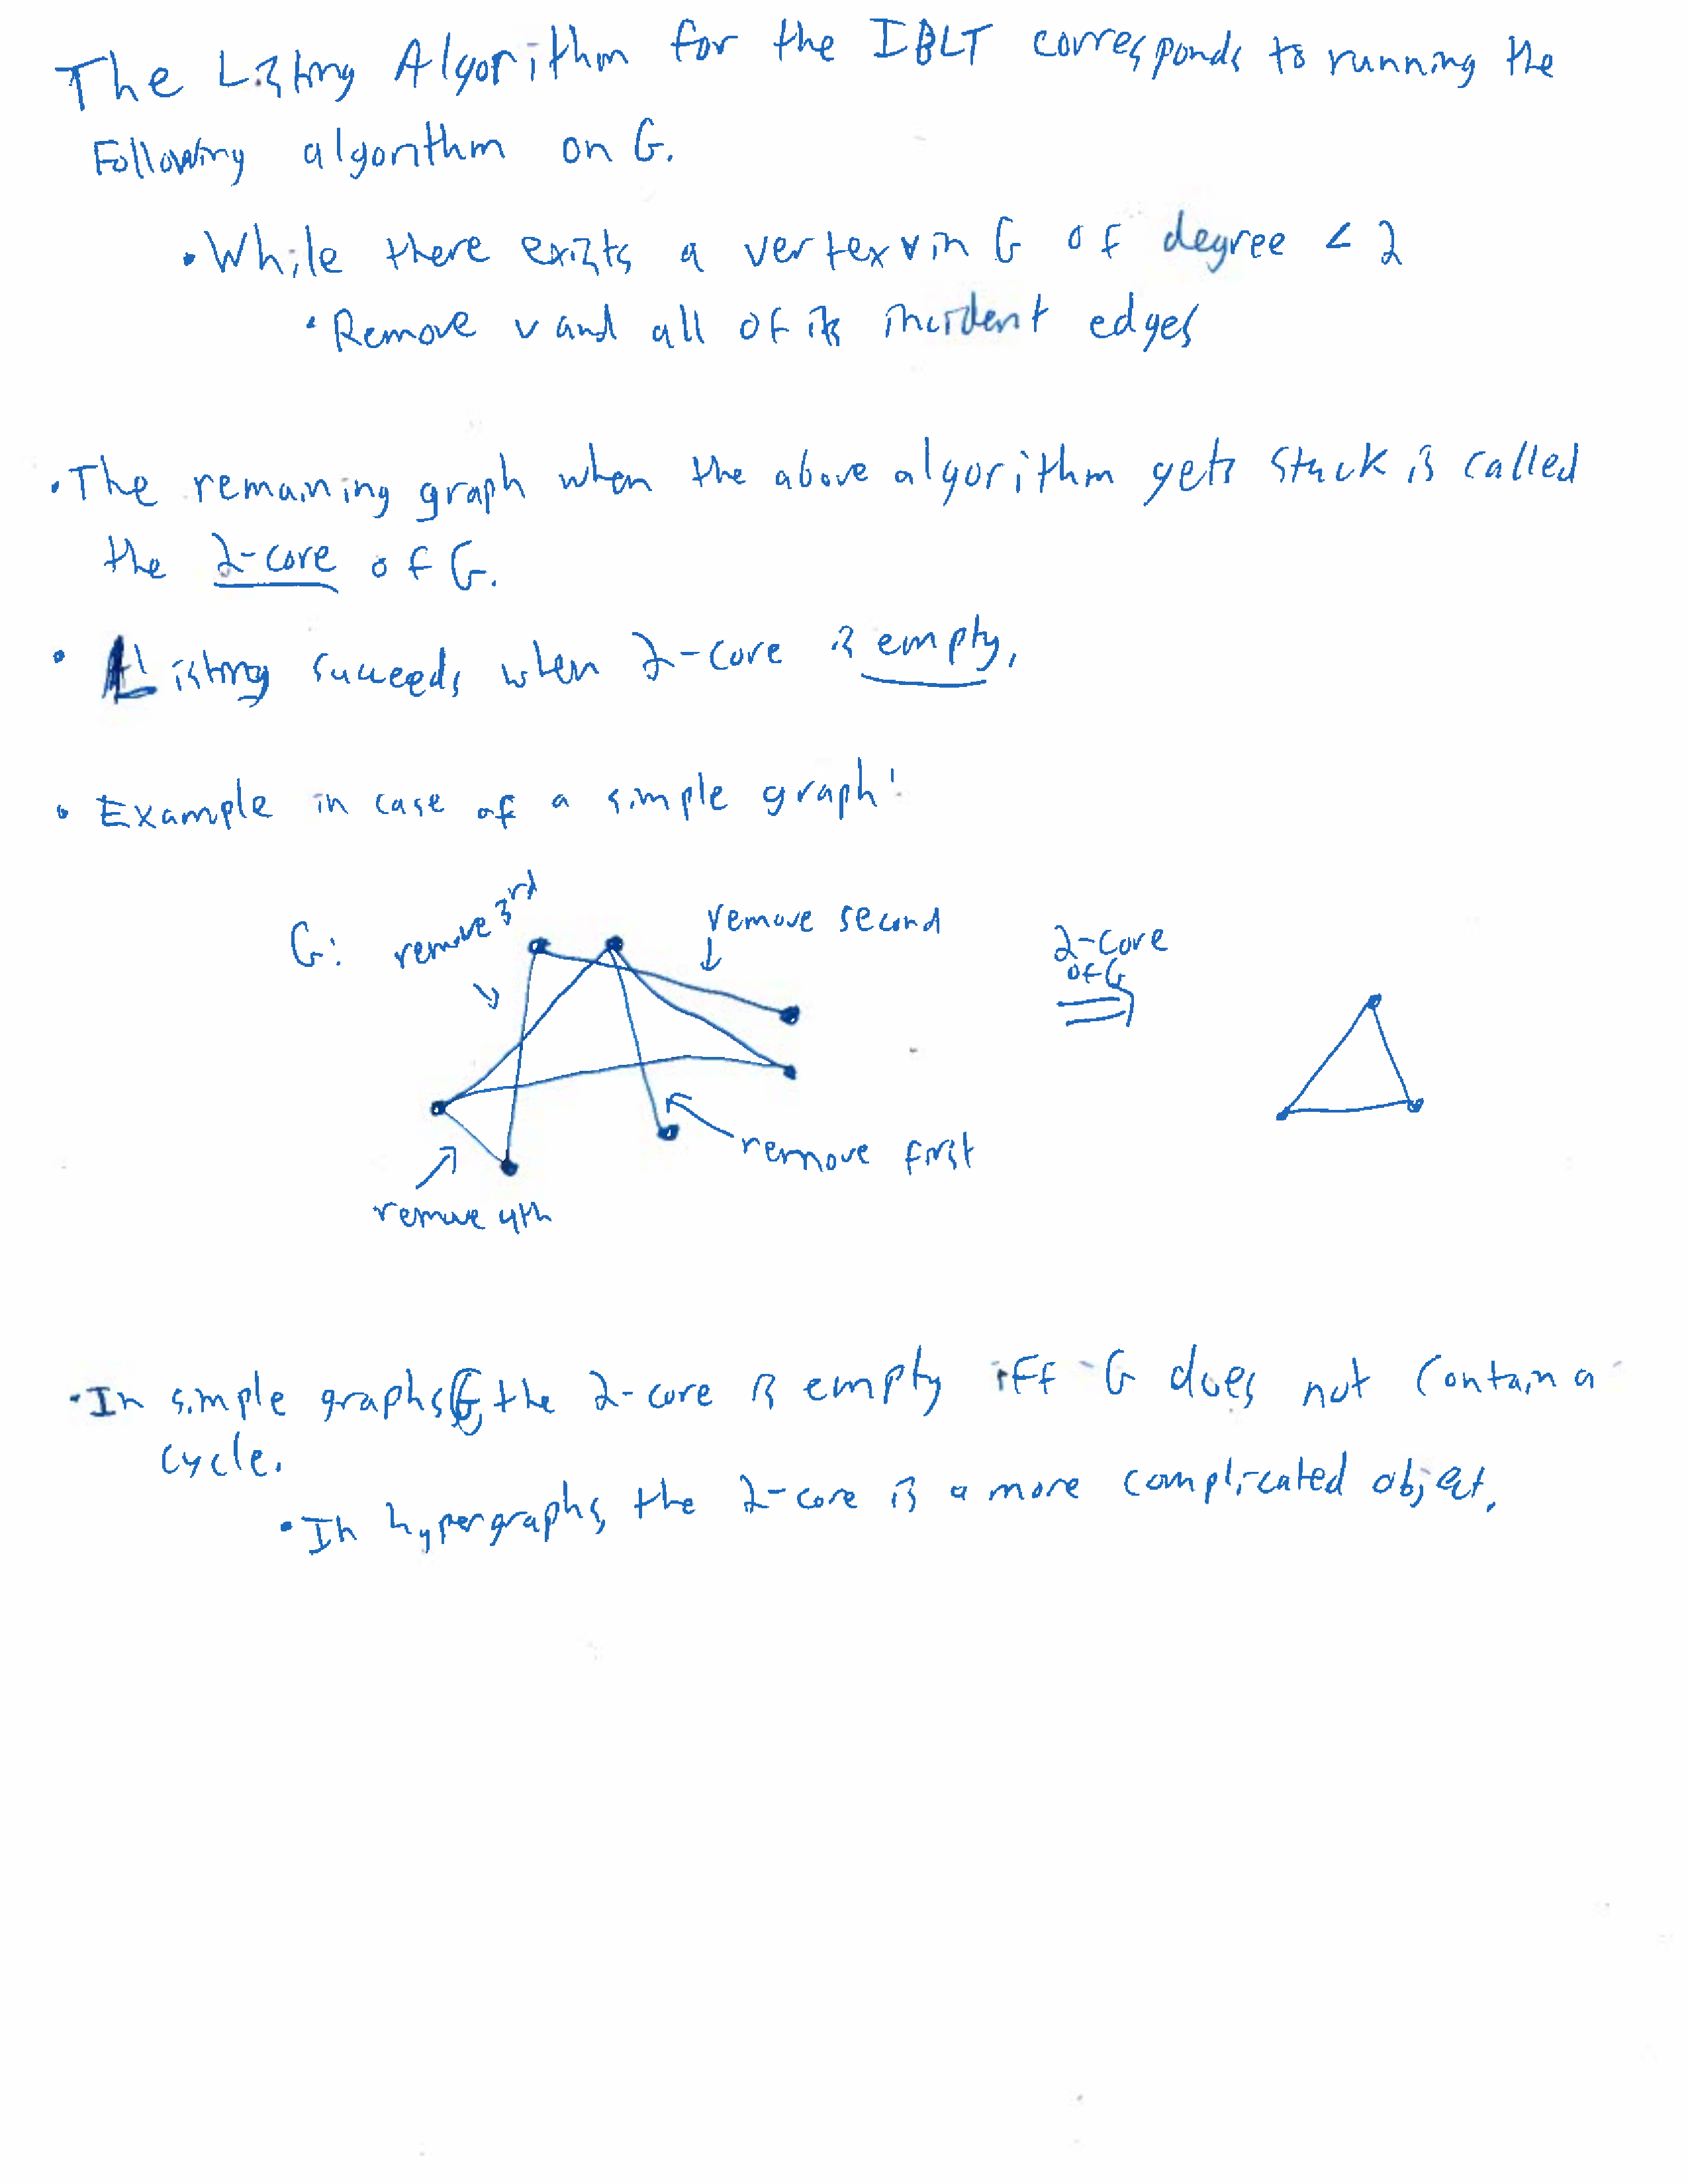 The Listing Algorithm for the IBLT corresponds to running the
Following algorithm on G.
• While there exists a vertex v in G of degree < 2
• Remove v and all of its incident edges
• The remaining graph when the above algorithm gets stuck is called
the 2-core of G.
• Listing succeeds when 2-core is empty.
• Example in case of a simple graph:
G:
remove 3rd
remove second
2-core
of G
remove first
remove 4th
• In simple graphs G, the 2-core is empty iff G does not contain a
cycle.
• In hypergraphs, the 2-core is a more complicated object.